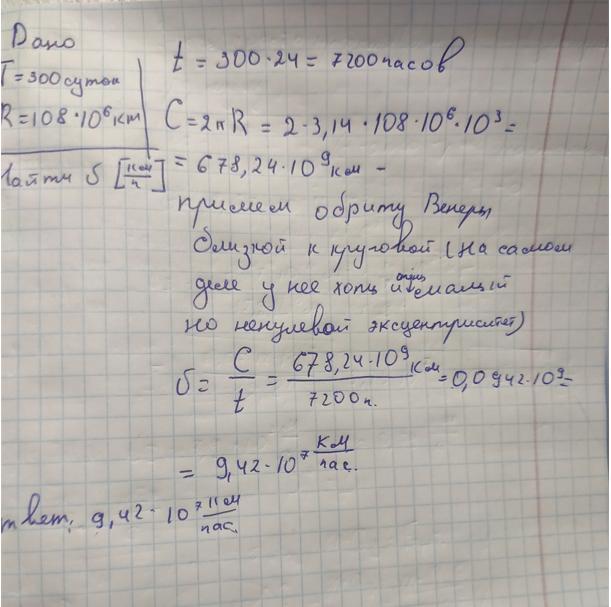 Дано
T = 300 суток
R = 108 · 10⁶ км
Найти υ [км/ч]
t = 300 · 24 = 7200 часов
C = 2πR = 2 · 3,14 · 108 · 10⁶ · 10³ =
= 678,24 · 10⁹ км -
примем обриту Венеры
близкой к круговой (на самом
деле у нее хоть и малый
но ненулевой эксцентриситет)
υ = C/t = 678,24 · 10⁹ км / 7200 ч. = 0,0942 · 10⁹ =
= 9,42 · 10⁷ км/час.
Ответ: 9,42 · 10⁷ км/час.